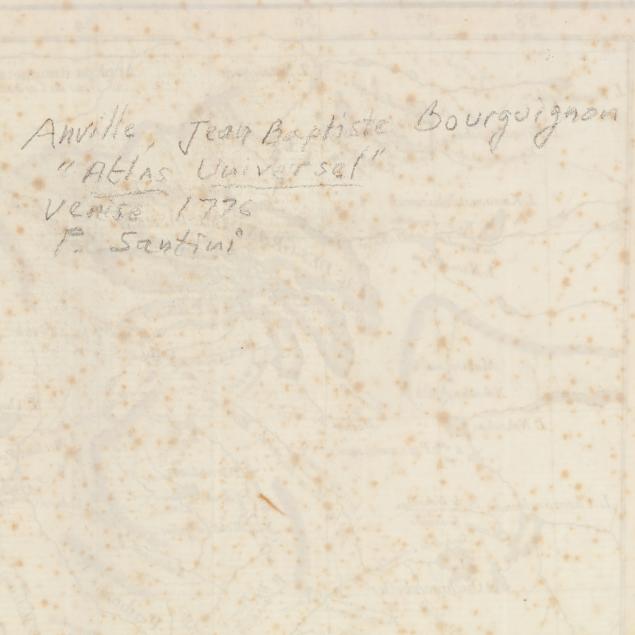 Anville, Jean Baptiste Bourguignon
"Atlas Universel"
Venise 1776
P. Santini